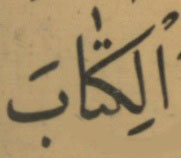 اَلْكِتٰابَ